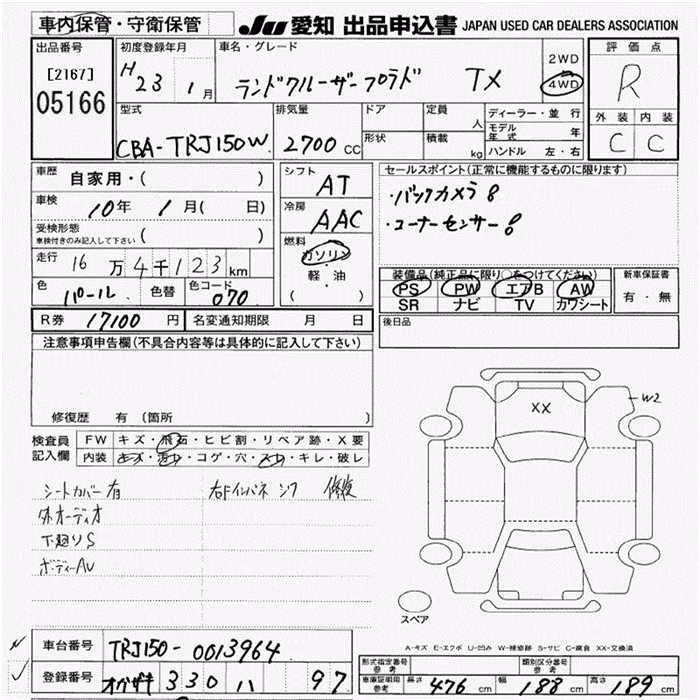 車内保管・守衛保管 JU 愛知 出品申込書 JAPAN USED CAR DEALERS ASSOCIATION
出品番号 初度登録年月 車名・グレード 評価点
[2167] H23 1月 ランドクルーザープラド TX 2WD 4WD R
05166
型式 排気量 ドア 定員 人 ディーラー・並行 外装 内装
CBA-TRJ150W 2700 CC 形状 積載 kg モデル年式 年 C C
ハンドル 左・右
車歴 自家用・( ) シフト AT セールスポイント(正常に機能するものに限ります)
車検 10年 1月( 日) 冷房 AAC ・バックカメラ
受検形態 車検付きのみ記入して下さい ( ) ・コーナーセンサー
走行 16万4千123km 燃料 ガソリン・軽油 ( )
色 パール 色替 色コード 070
装備品(純正品に限り○をつけてください) 新車保証書
PS PW エアB AW 有・無
SR ナビ TV カワシート
R券 17100円 名変通知期限 月 日 後日品
注意事項申告欄(不具合内容等は具体的に記入して下さい)
修復歴 有 (箇所 )
検査員記入欄 FW キズ・飛石・ヒビ割・リペア跡・X要
内装 キズ・汚レ・コゲ・穴・スレ・キレ・破レ
シートカバー有 右Fインパネ 修復
外オーディオ
下廻りS
ボディーAU
XX
W2
スペア
A-キズ E-エクボ U-凹み W-補修跡 S-サビ C-腐食 XX-交換済
車台番号 TRJ150-0013964
登録番号 330 ハ 97
形式指定番号 参考 類別区分番号 参考
車庫証明用 参考 長さ 476 cm 幅 188 cm 高さ 189 cm